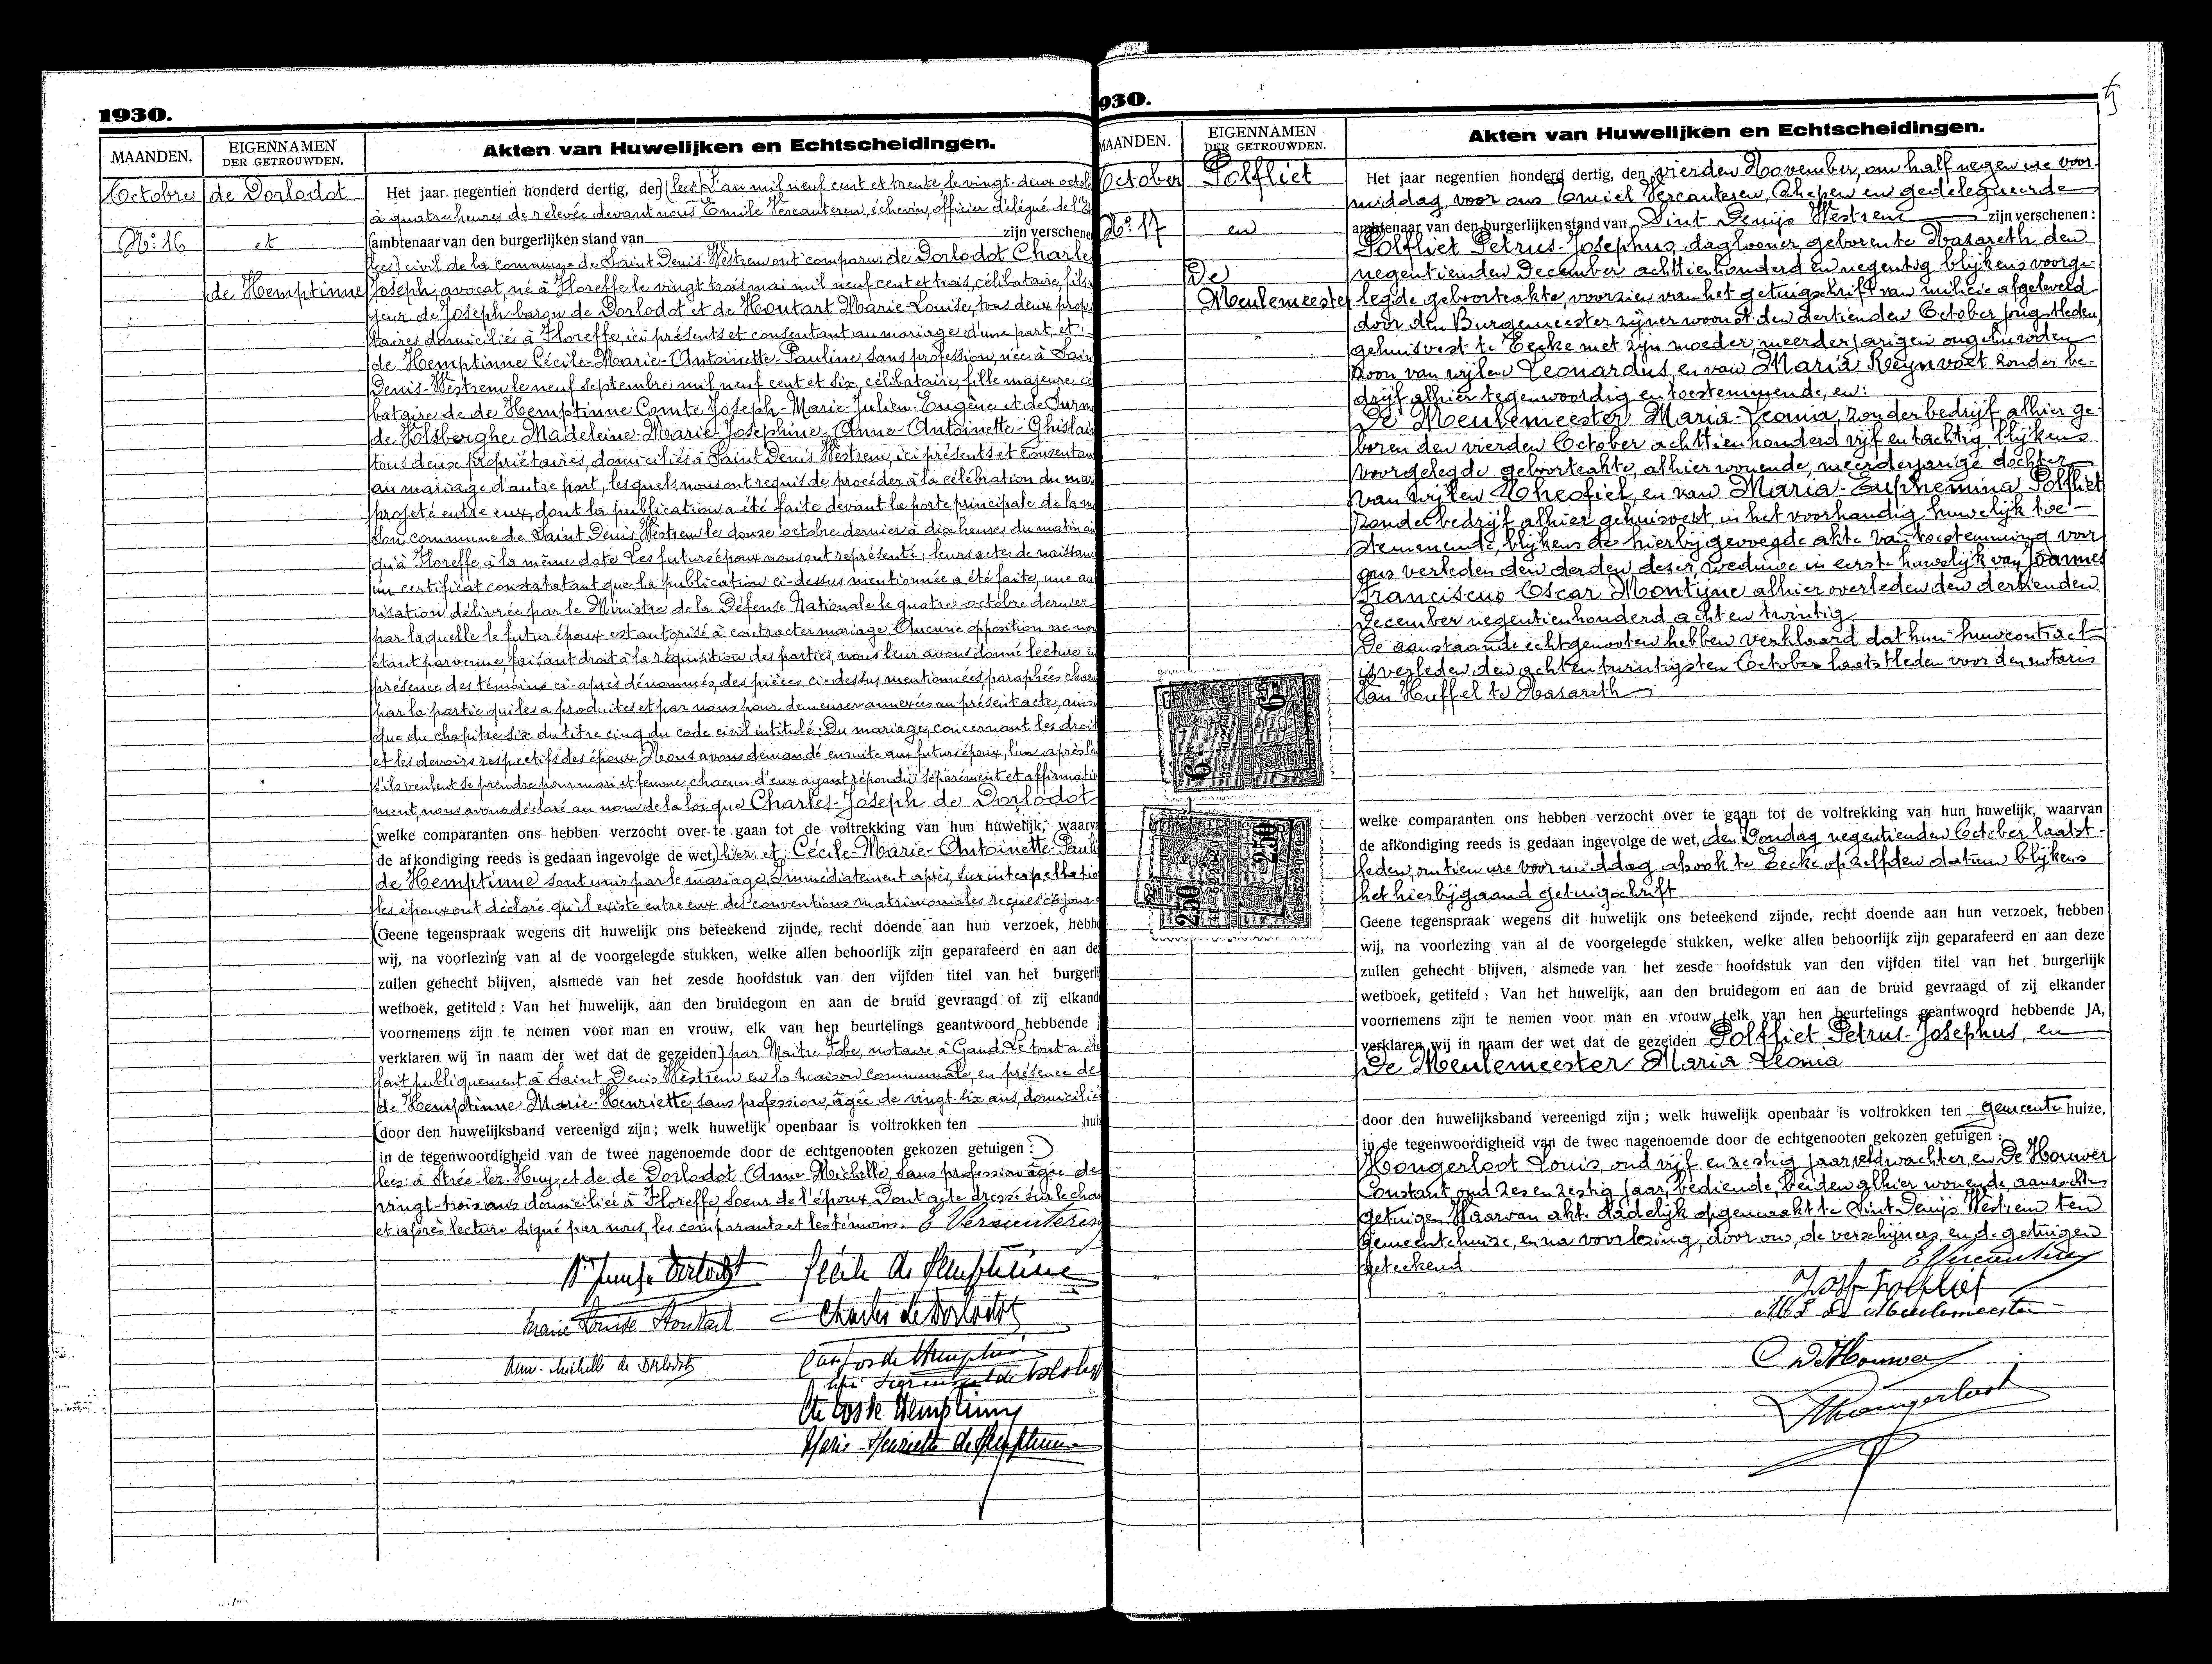 1930.
MAANDEN.
EIGENNAMEN
DER GETROUWDEN.
Akten van Huwelijken en Echtscheidingen.
Octobre
de Dorlodot
Nº: 16
et
de Hemptinne
Het jaar negentien honderd dertig, den (lees) L'an mil neuf cent et trente le vingt-deux octob
à quatre heures de relevée devant nous Emile Vercauteren, échevin, officier délégué de l'
(ambtenaar van den burgerlijken stand van zijn verschene
lees) civil de la commune de Saint Denis-Westrem ont comparu: de Dorlodot Charle
Joseph, avocat, né à Floreffe le vingt trois mai mil neuf cent et trois, célibataire, fils
jeur de Joseph baron de Dorlodot et de Houtart Marie-Louise, tous deux propr
taires domiciliés à Floreffe, ici présents et consentant au mariage d'une part, et:
de Hemptinne Cécile-Marie-Antoinette-Pauline, sans profession, née à Sain
Denis-Westrem le neuf septembre mil neuf cent et six, célibataire, fille majeure cé
bataire de de Hemptinne Comte Joseph-Marie-Julien-Eugène et de Surm
de Volsberghe Madeleine-Marie-Joséphine-Anne-Antoinette-Ghislain
tous deux propriétaires, domiciliés à Saint Denis Westrem, ici présents et consentan
au mariage d'autre part, lesquels nous ont requis de procéder à la célébration du mar
projeté entre eux, dont la publication a été faite devant la porte principale de la m
son commune de Saint Denis Westrem le douze octobre dernier à dix heures du matin ain
qu'à Floreffe à la même date. Les futurs époux nous ont représenté: leurs actes de naissanc
un certificat constatatant que la publication ci-dessus mentionnée a été faite, une au
risation délivrée par le Ministre de la Défense Nationale le quatre octobre dernier
par laquelle le futur époux est autorisé à contracter mariage. Aucune opposition ne nou
étant parvenue faisant droit à la réquisition des parties, nous leur avons donné lecture e
présence des témoins ci-après dénommés, des pièces ci-dessus mentionnées, paraphées chacu
par la partie qui les a produites et par nous pour demeurer annexées au présent acte, ains
que du chapitre six du titre cinq du code civil intitulé: Du mariage, concernant les droit
et les devoirs respectifs des époux. Nous avons demandé ensuite aux futurs époux, l'un après l'a
s'ils veulent se prendre pour mari et femme, chacun d'eux ayant répondu séparément et affirmativ
ment, nous avons déclaré au nom de la loi que Charles-Joseph de Dorlodot
(welke comparanten ons hebben verzocht over te gaan tot de voltrekking van hun huwelijk, waarva
de afkondiging reeds is gedaan ingevolge de wet,) lees: et: Cécile-Marie-Antoinette-Pauli
de Hemptinne sont unis par le mariage. Immédiatement après, sur interpellatio
les époux ont déclaré qu'il existe entre eux des conventions matrimoniales reçues ce jour
(Geene tegenspraak wegens dit huwelijk ons beteekend zijnde, recht doende aan hun verzoek, hebbe
wij, na voorlezing van al de voorgelegde stukken, welke allen behoorlijk zijn geparafeerd en aan de
zullen gehecht blijven, alsmede van het zesde hoofdstuk van den vijfden titel van het burgerli
wetboek, getiteld : Van het huwelijk, aan den bruidegom en aan de bruid gevraagd of zij elkand
voornemens zijn te nemen voor man en vrouw, elk van hen beurtelings geantwoord hebbende J
verklaren wij in naam der wet dat de gezeiden) par Maître Fobe, notaire à Gand. Le tout a été
fait publiquement à Saint Denis Westrem en la maison communale, en présence de
de Hemptinne Marie-Henriette, sans profession, âgée de vingt-six ans, domicilié
(door den huwelijksband vereenigd zijn; welk huwelijk openbaar is voltrokken ten hui
in de tegenwoordigheid van de twee nagenoemde door de echtgenooten gekozen getuigen :)
lees: à Strée-lez-Huy, et de de Dorlodot Anne Michelle, sans profession âgée de
vingt-trois ans domiciliée à Floreffe, soeur de l'époux. Dont acte dressé sur le cha
et après lecture signé par nous, les comparants et les témoins. E Vercauteren
Cécile de Hemptinne
Marie Louise Houtart
Charles de Dorlodot
Anne-Michelle de Dorlodot
Marie-Henriette de Hemptinne
930.
MAANDEN.
EIGENNAMEN
DER GETROUWDEN.
Akten van Huwelijken en Echtscheidingen.
October
Polfliet
Nº: 17
en
De
Meulemeester
Het jaar negentien honderd dertig, den vierden November, om half negen ure voor-
middag, voor ons Emiel Vercauteren, Schepen en gedelegueerde
ambtenaar van den burgerlijken stand van Sint Denijs Westrem zijn verschenen :
Polfliet Petrus-Josephus, daglooner, geboren te Nazareth den
negentienden December achttienhonderd en negentig blijkens voorge-
legde geboorteakte, voorzien van het getuigschrift van milicie afgeleverd
door den Burgemeester zijner woonst den dertienden October jongstleden
gehuisvest te Eecke met zijn moeder, meerderjarigen ongehuwden
zoon van wijlen Leonardus, en van Maria Reynvoet zonder be-
drijf alhier tegenwoordig en toestemmende, en:
De Meulemeester Maria-Leonia, zonder bedrijf, alhier ge-
boren den vierden October achttienhonderd vijf en tachtig, blijkens
voorgelegde geboorteakte, alhier wonende, meerderjarige dochter
van wijlen Theofiel, en van Maria-Euphemina Polfliet
zonder bedrijf alhier gehuisvest, in het voorhandig huwelijk toe-
stemmende, blijkens de hierbijgevoegde akte van toestemming voor
ons verleden den derden dezer, weduwe in eerste huwelijk van Joannes
Franciscus Oscar Montijne alhier overleden den dertienden
December negentienhonderd acht en twintig.
De aanstaande echtgenooten hebben verklaard dat hun huwcontract
is verleden den achtentwintigsten October laatstleden voor den notaris
Van Huffel te Nazareth
6
6
250
250
welke comparanten ons hebben verzocht over te gaan tot de voltrekking van hun huwelijk, waarvan
de afkondiging reeds is gedaan ingevolge de wet, den Zondag negentienden October laatst-
leden, om tien ure voormiddag alsook te Eecke op zelfden datum blijkens
het hierbijgaand getuigschrift
Geene tegenspraak wegens dit huwelijk ons beteekend zijnde, recht doende aan hun verzoek, hebben
wij, na voorlezing van al de voorgelegde stukken, welke allen behoorlijk zijn geparafeerd en aan deze
zullen gehecht blijven, alsmede van het zesde hoofdstuk van den vijfden titel van het burgerlijk
wetboek, getiteld : Van het huwelijk, aan den bruidegom en aan de bruid gevraagd of zij elkander
voornemens zijn te nemen voor man en vrouw, elk van hen beurtelings geantwoord hebbende JA,
verklaren wij in naam der wet dat de gezeiden Polfliet Petrus-Josephus, en
De Meulemeester Maria Leonia
door den huwelijksband vereenigd zijn ; welk huwelijk openbaar is voltrokken ten gemeente huize,
in de tegenwoordigheid van de twee nagenoemde door de echtgenooten gekozen getuigen :
Hongerloot Louis, oud vijf en zestig jaar, veldwachter, en De Houwer
Constant, oud zes en zestig jaar, bediende, beiden alhier wonende, aanzochte
getuigen. Waarvan akte dadelijk opgemaakt te Sint Denijs Westrem ten
Gemeentehuize, en na voorlezing, door ons, de verschijners en de getuigen
geteekend.
E Vercauteren
Josef Polfliet
M L De Meulemeester
C De Houwer
L Hongerloot